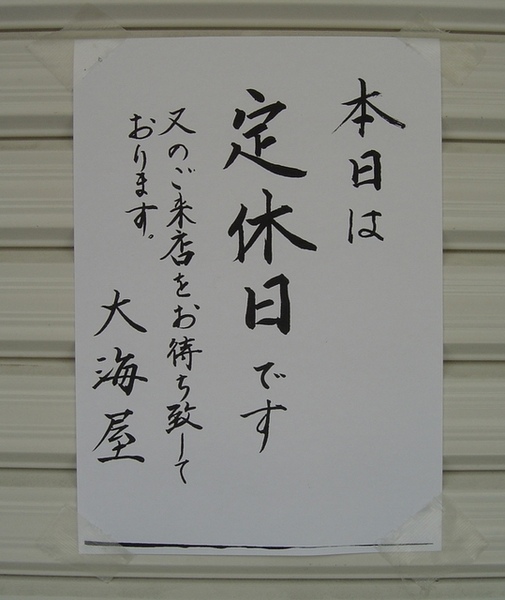 本日は
定休日です
又のご来店をお待ち致して
おります。
大海屋